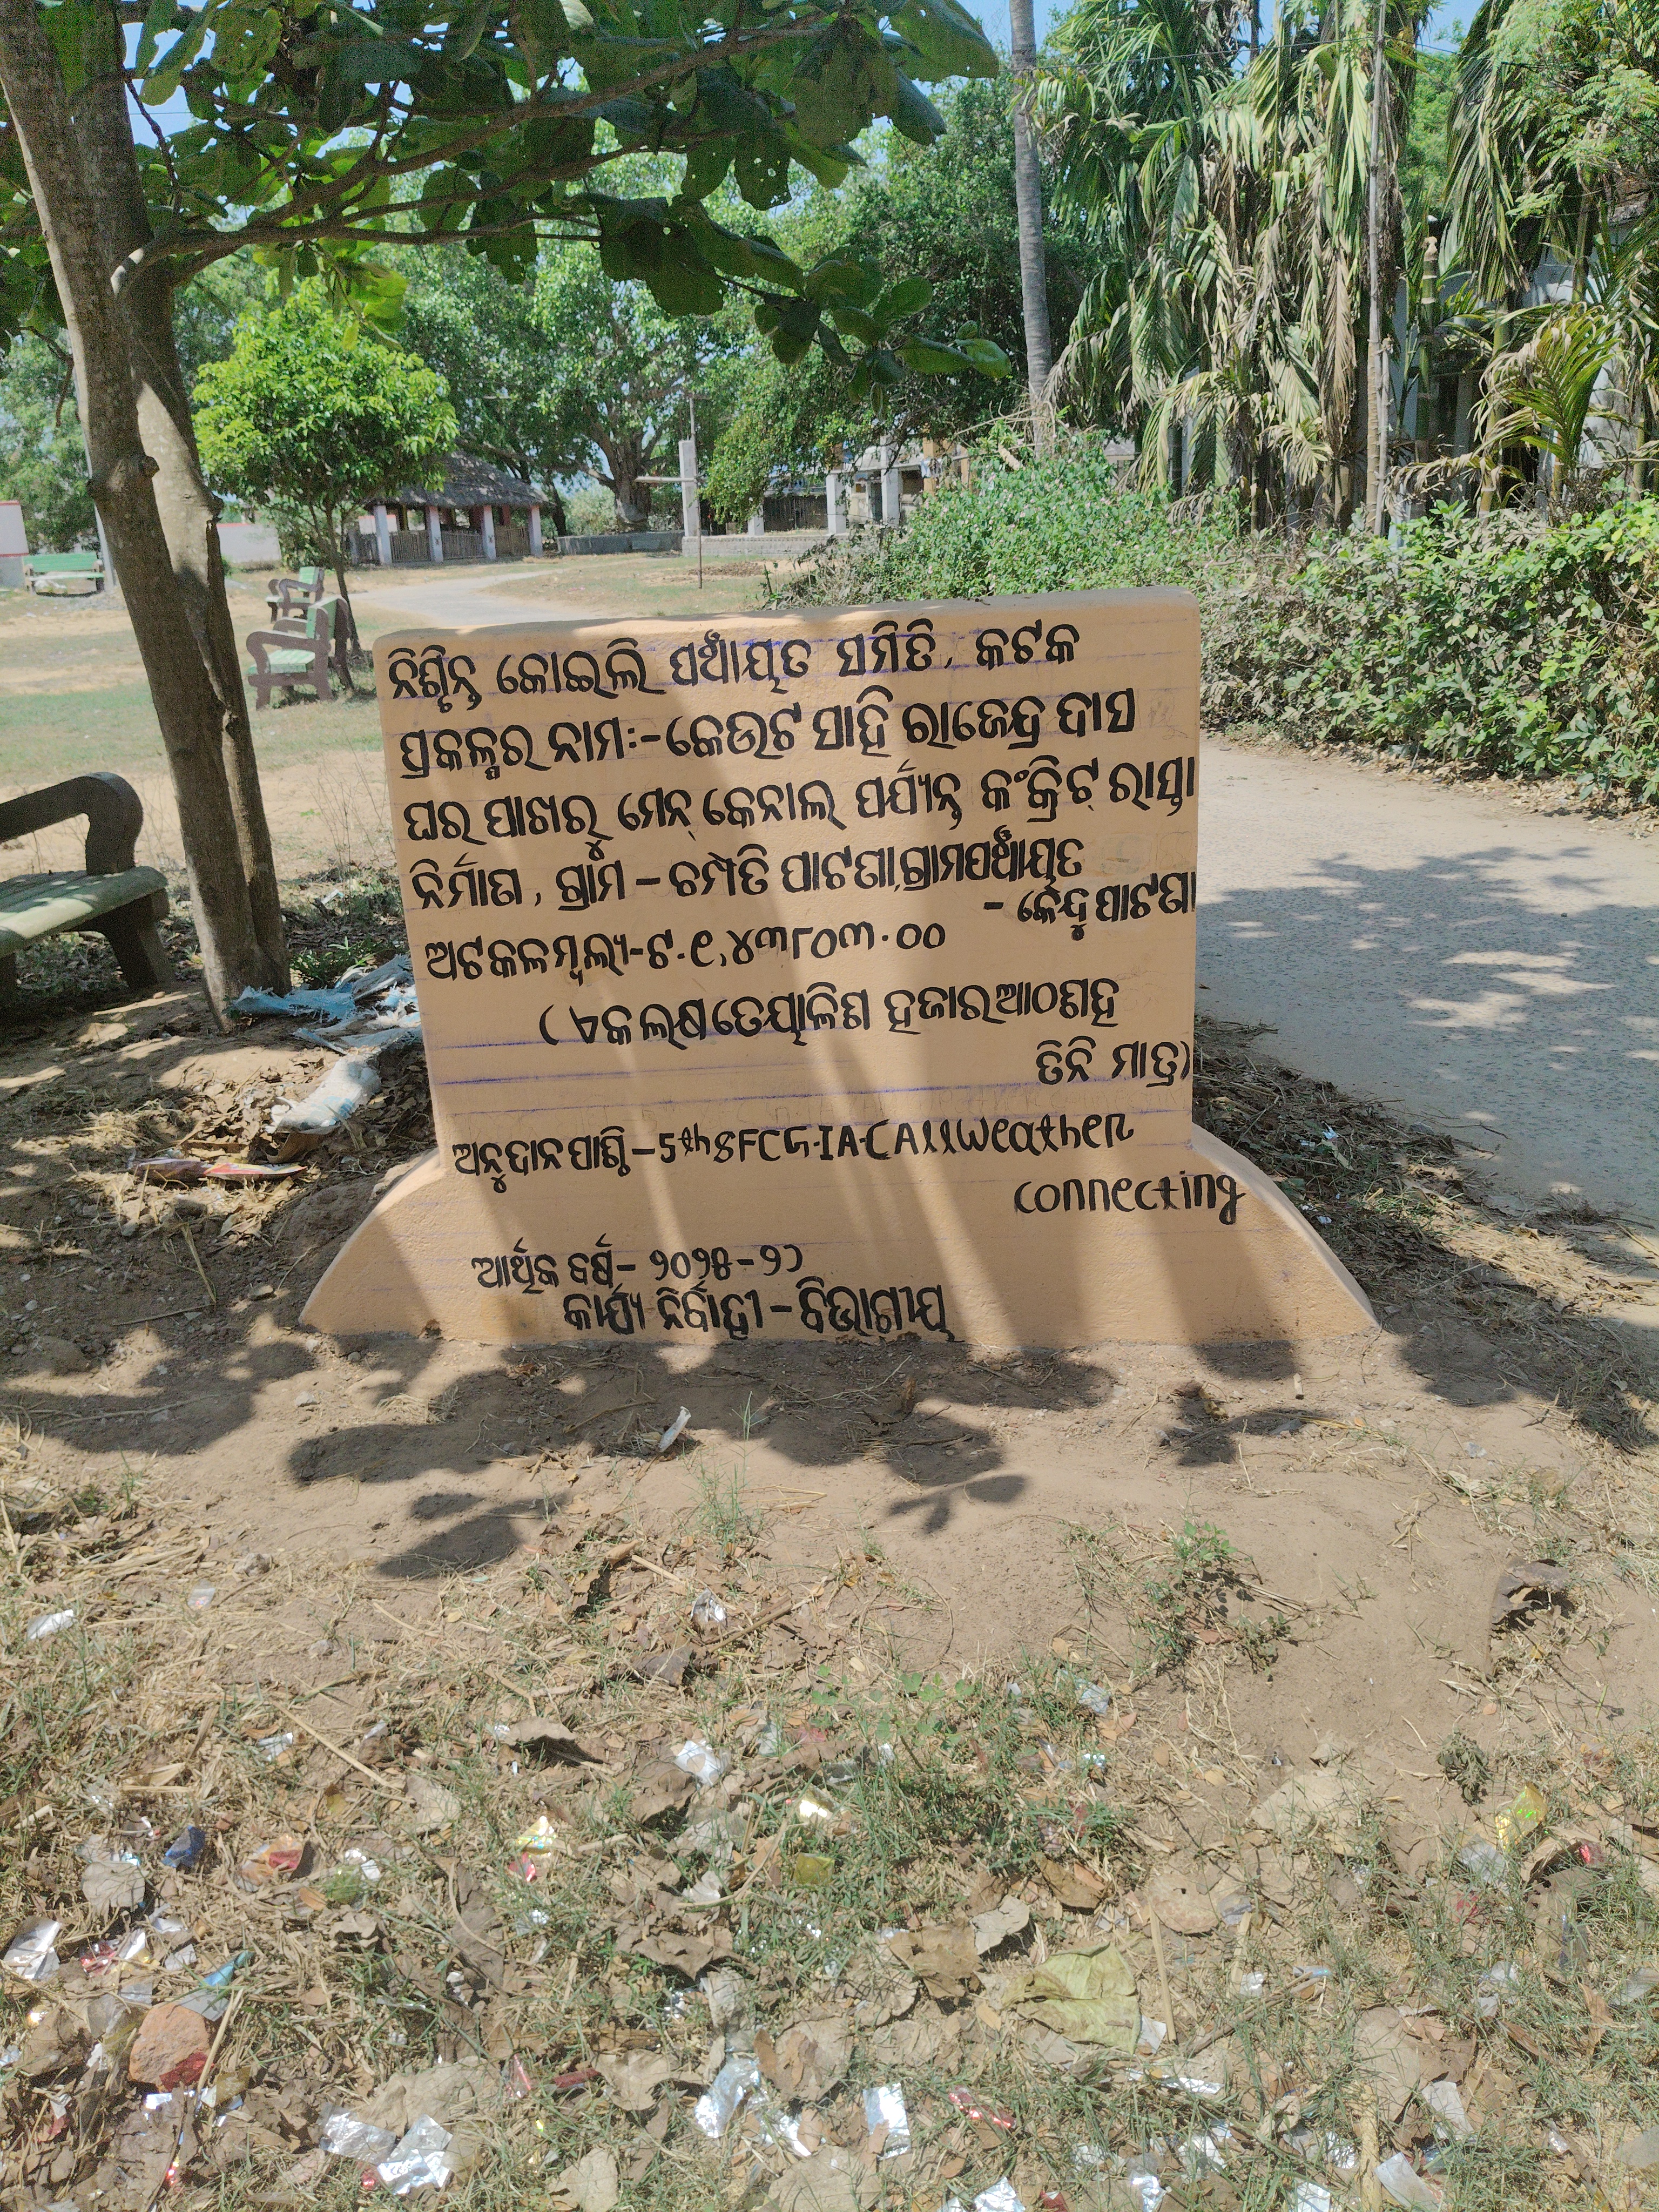 ନିଶ୍ଚିନ୍ତ କୋଇଲି ପଞ୍ଚାୟତ ସମିତି, କଟକ
ପ୍ରକଳ୍ପର ନାମଃ-କେଉଟ ସାହି ରାଜେନ୍ଦ୍ର ଦାସ
ଘର ପାଖରୁ ମେନ୍ କେନାଲ୍ ପର୍ଯ୍ୟନ୍ତ କଂକ୍ରିଟ୍ ରାସ୍ତା
ନିର୍ମାଣ, ଗ୍ରାମ - ଚମ୍ପତି ପାଟଣା, ଗ୍ରାମପଞ୍ଚାୟତ
- କେନ୍ଦୁପାଟଣା
ଅଟକଳମୂଲ୍ୟ-ଟ.୧,୪୩୮୦୩.୦୦
(ଏକ ଲକ୍ଷ ତେୟାଳିଶ ହଜାର ଆଠଶହ
ତିନି ମାତ୍ର)
ଅନୁଦାନ ପାଣ୍ଠି-5th SFC G.IA-C All Weather
connecting
ଆର୍ଥିକ ବର୍ଷ- ୨୦୨୫-୨୬
କାର୍ଯ୍ୟ ନିର୍ବାହୀ - ବିଭାଗୀୟ